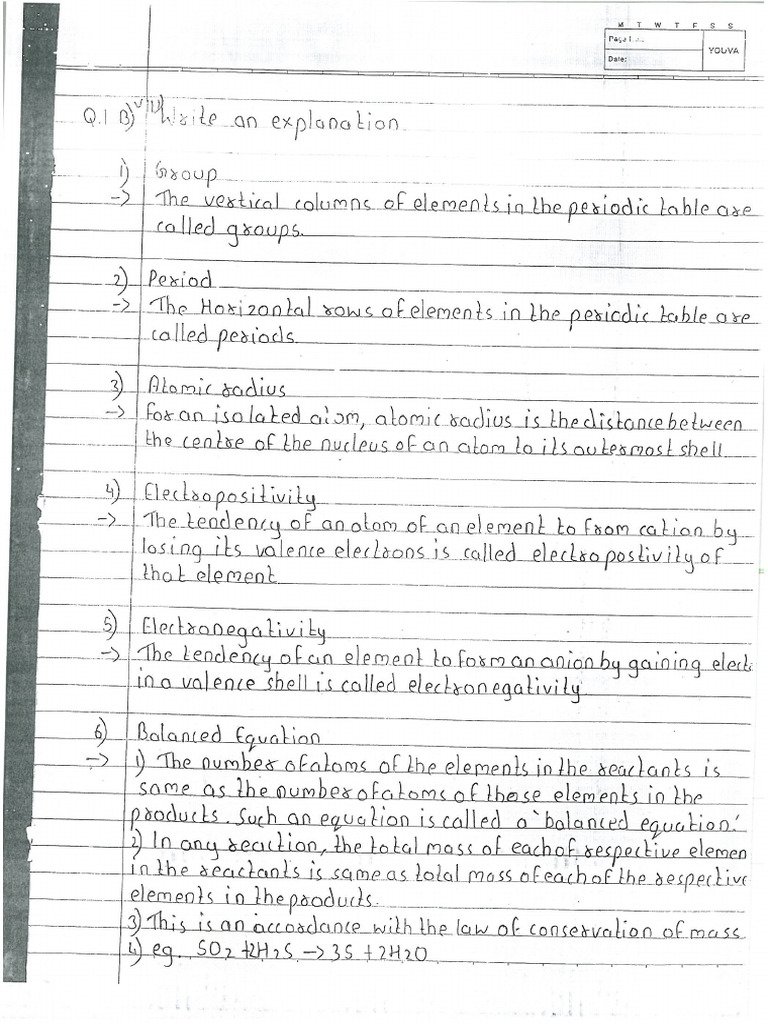 M T W T F S S
Page No.:
Date:
YOUVA
Q.1 B) VIII) Write an explanation.
1) Group
-> The vertical columns of elements in the periodic table are
called groups.
2) Period
-> The Horizontal rows of elements in the periodic table are
called periods
3) Atomic radius
-> for an isolated atom, atomic radius is the distance between
the centre of the nucleus of an atom to its outermost shell
4) Electropositivity
-> The tendency of an atom of an element to from cation by
losing its valence electrons is called electropostivity of
that element
5) Electronegativity
-> The tendency of an element to form an anion by gaining elect
in a valence shell is called electronegativity
6) Balanced Equation
-> 1) The number of atoms of the elements in the reactants is
same as the number of atoms of those elements in the
products. Such an equation is called a 'balanced equation.'
2) In any reaction, the total mass of each of respective elemen
in the reactants is same as total mass of each of the respective
elements in the products.
3) This is an accordance with the law of conservation of mass
4) eg. SO2 + 2H2S -> 3S + 2H2O